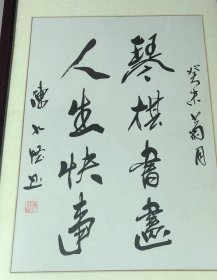 癸未菊月
琴棋書畫
人生快事